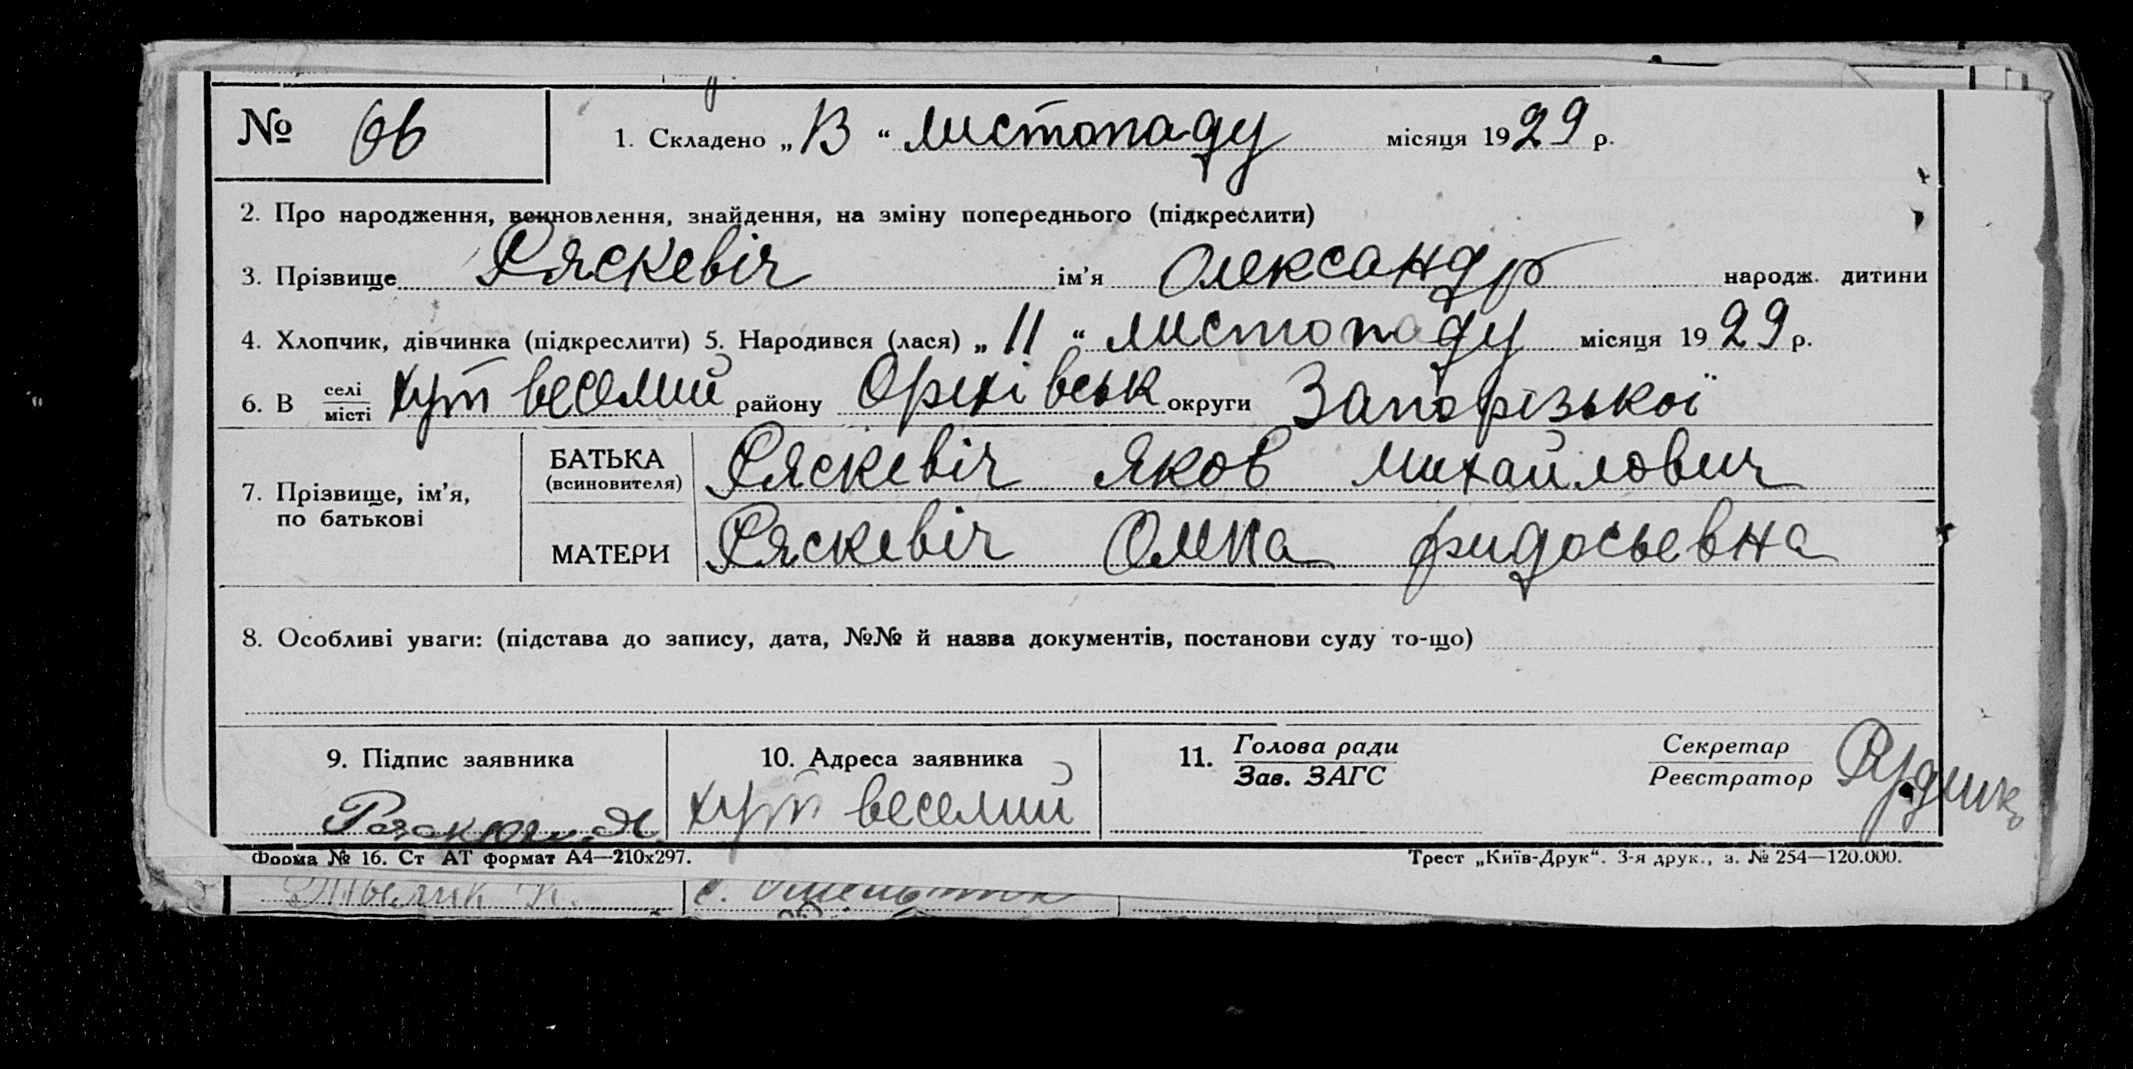 № 66
1. Складено „13“ листопаду місяця 1929 р.
2. Про народження, всиновлення, знайдення, на зміну попереднього (підкреслити)
3. Прізвище Ряскевіч ім’я Олександр народж. дитини
4. Хлопчик, дівчинка (підкреслити) 5. Народився (лася) „11“ листопаду місяця 1929 р.
6. В селі/місті хут веселий району Оріхівськ округи Запорізької
7. Прізвище, ім’я, по батькові
БАТЬКА (всиновителя) Ряскевіч Яков Михайлович
МАТЕРИ Ряскевіч Олена фидосьевна
8. Особливі уваги: (підстава до запису, дата, №№ й назва документів, постанови суду то-що)
9. Підпис заявника
10. Адреса заявника
хут веселий
11. Голова ради
Зав. ЗАГС
Секретар
Реєстратор
Форма № 16. Ст АТ формат А4—210х297.
Трест „Київ-Друк“. 3-я друк., з. № 254—120.000.